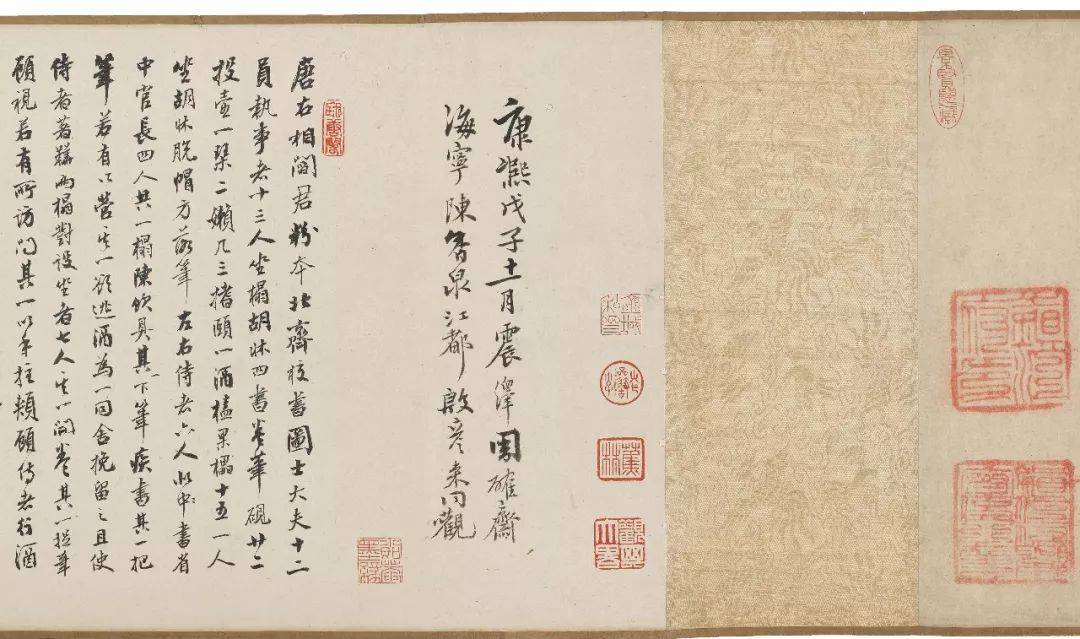 蕉林
觀其大略
康熙戊子十一月震澤周確齋
海寧陳香泉江都殷彥来同觀
唐右相閻君粉本北齊校書圖士大夫十二
員執事者十三人坐榻胡牀四書卷筆硯廿二
投壺一琴二懶几三搘頤一酒榼果櫑十五一人
坐胡牀脫帽方落筆左右侍者六人似中書省
中官長四人共一榻陳飲具其一下筆疾書其一把
筆若有以營其一欲逃酒為一同舍挽留之且使
侍者著鞾兩榻對設坐者七人其一開卷其一捉筆
顧視若有所訪問其一以手拄頰顧侍者行酒